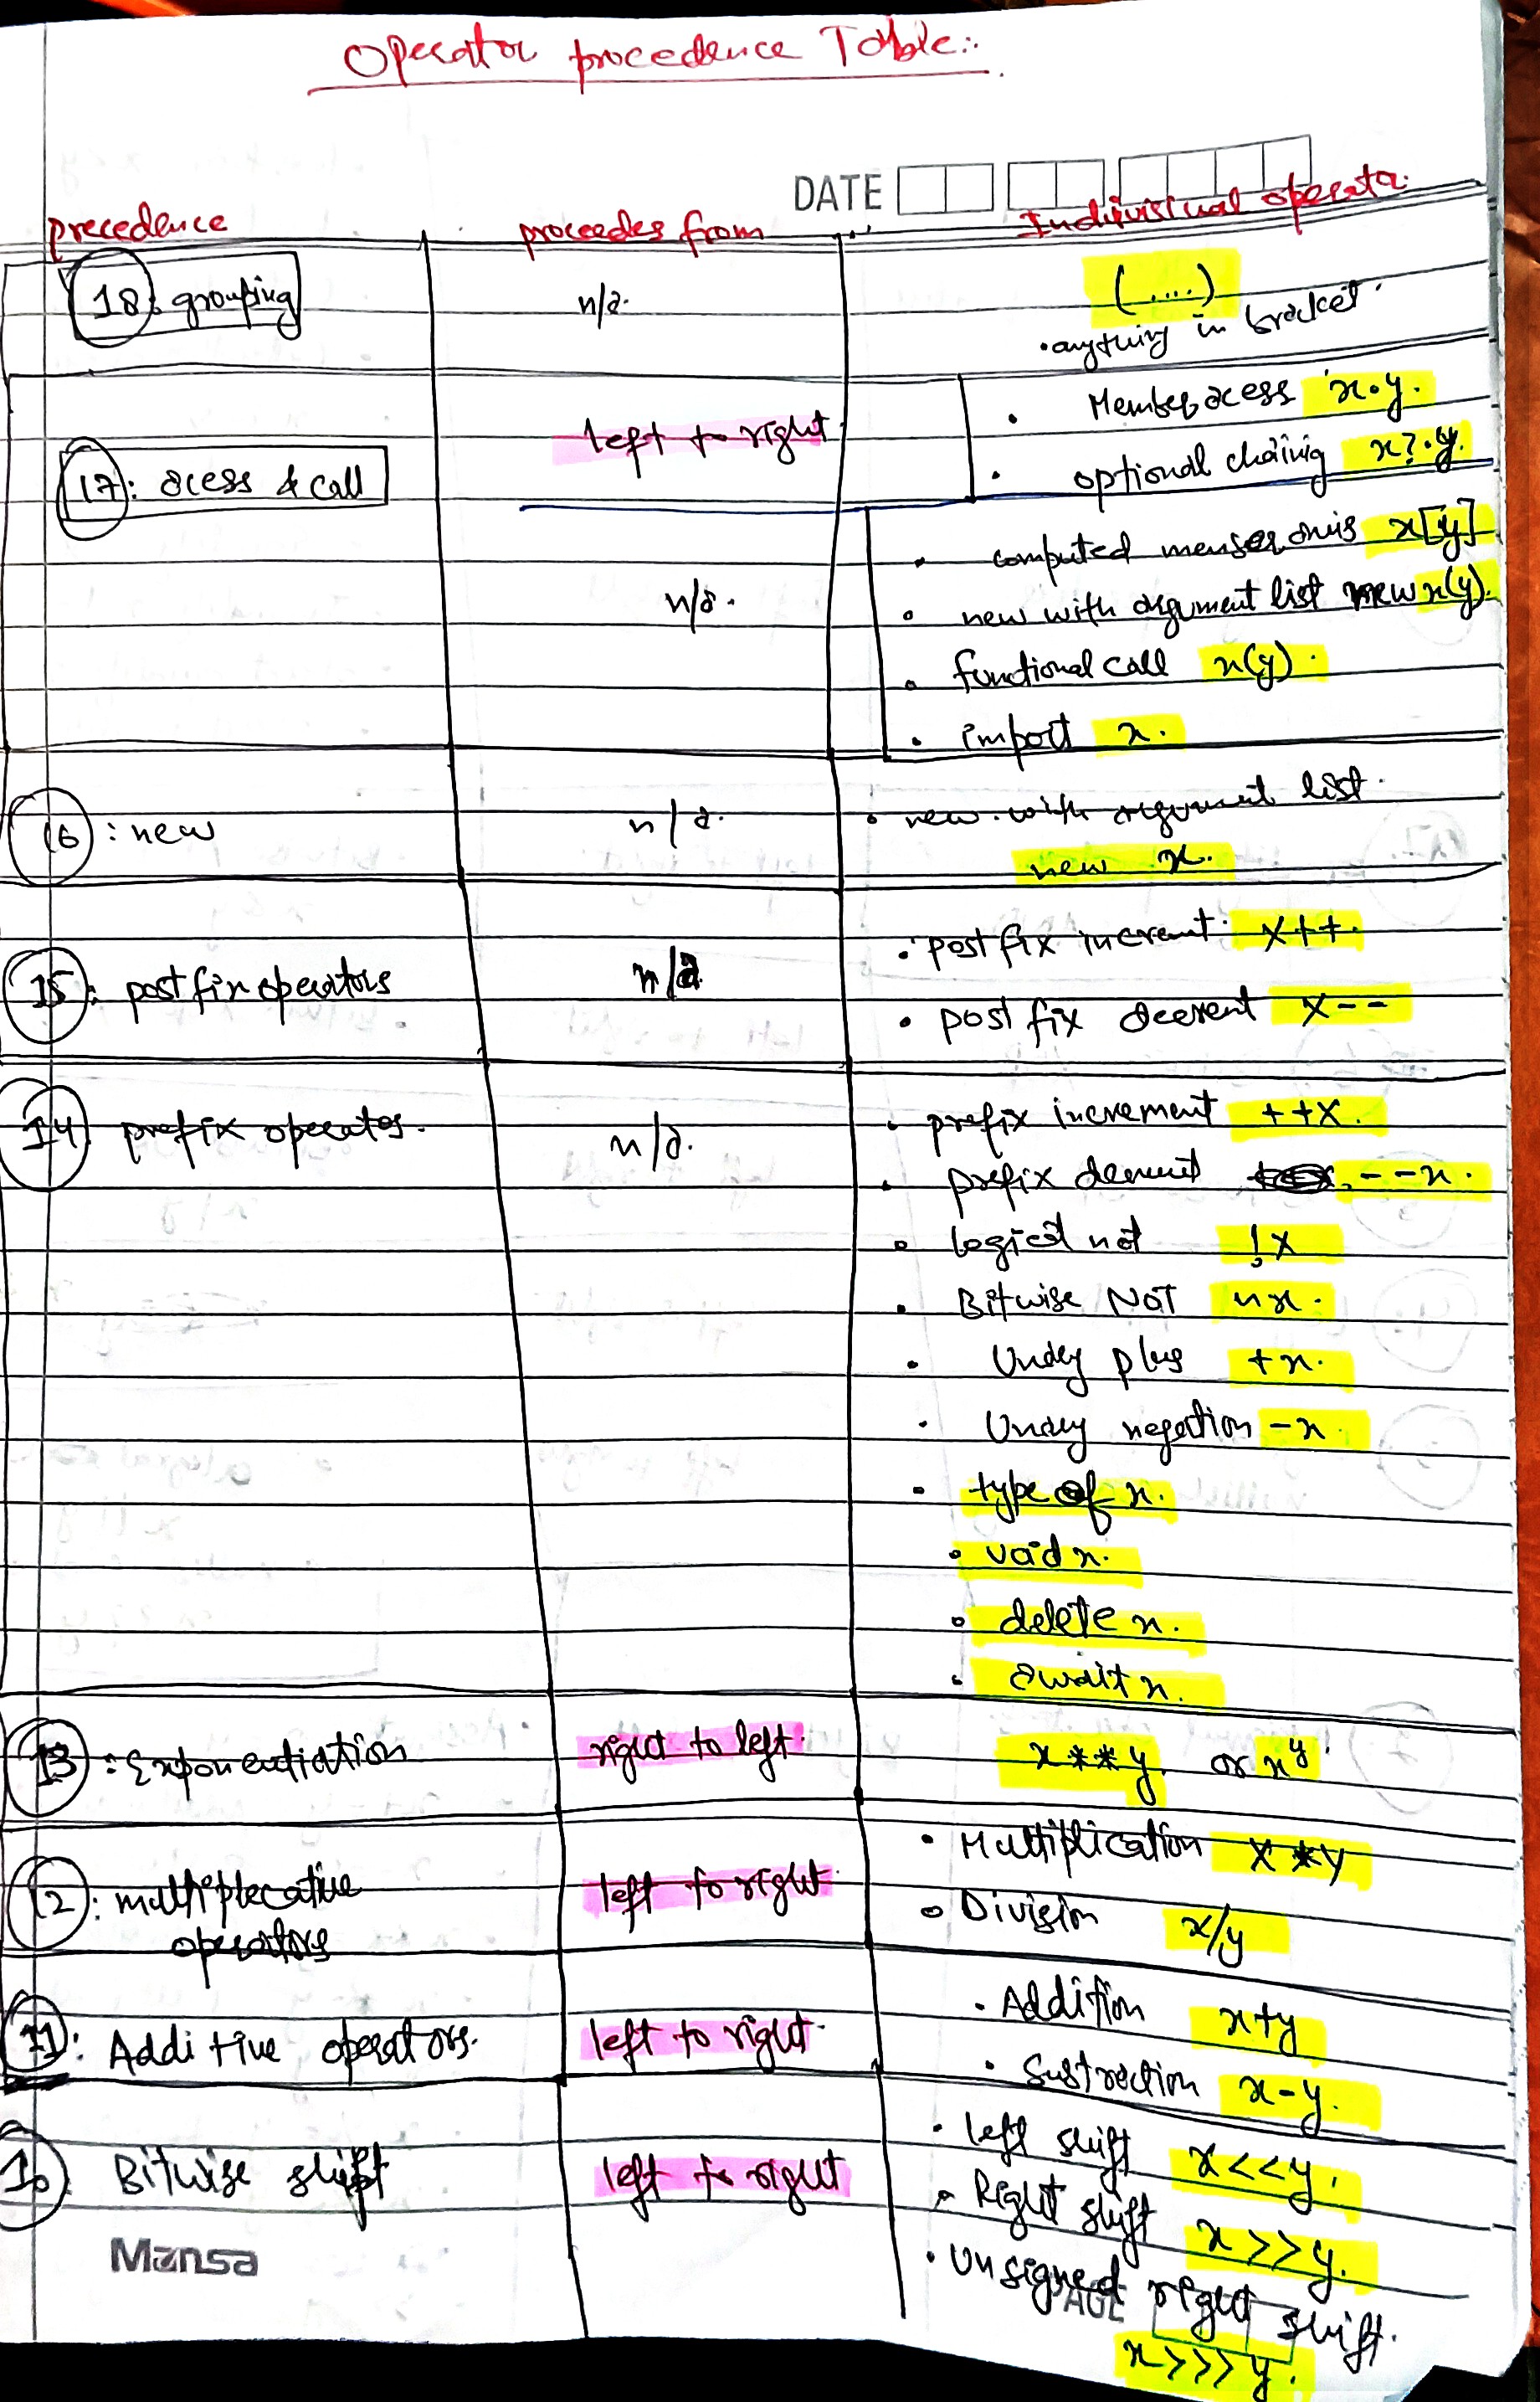 Operator procedence Table:.
DATE
precedence proceedes from Indivisual operator.
18: grouping n/a. (....)
•anything in bracket.
17: acess & call left to right
• Member acess x.y.
• optional chainig x?.y.
n/a.
• computed x[y]
• new with argument list new x(y).
• functional call x(y).
• import x.
16: new n/a. • new with argument list.
new x.
15: post fix operators n/a
• post fix incrent. x++.
• post fix decrent x--
14 prefix operates. n/a.
• prefix increment ++x.
• prefix decremt --x.
• logical not !x
• Bitwise NOT ~x.
• Unary plus +x.
• Unary negation -x.
• type of x.
• void x.
• delete x.
• await x.
13: Exponentiation right to left. x**y. or xʸ.
12: multiplecative
operators left to right. • Multiplication x*y
• Division x/y
11: Additive operators. left to right. • Addition x+y
• Sustraction x-y.
10 Bitwise shift left to right • left shift x<<y.
• Right shift x>>y.
• Unsigned right shift.
x>>>y.
Mansa
PAGE